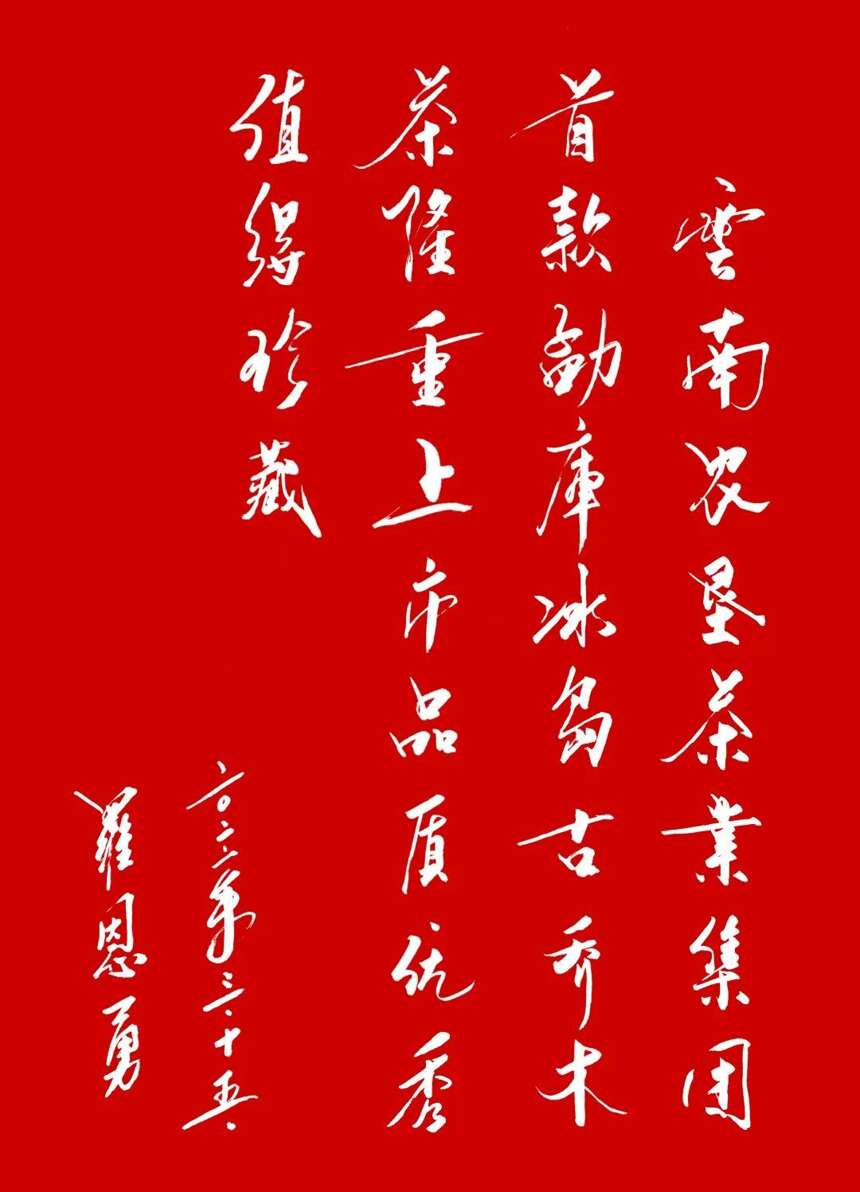 雲南农垦茶業集团
首款勐庫冰岛古乔木
茶隆重上市品质优秀
值得珍藏
二〇二二年三·十五·
羅恩勇